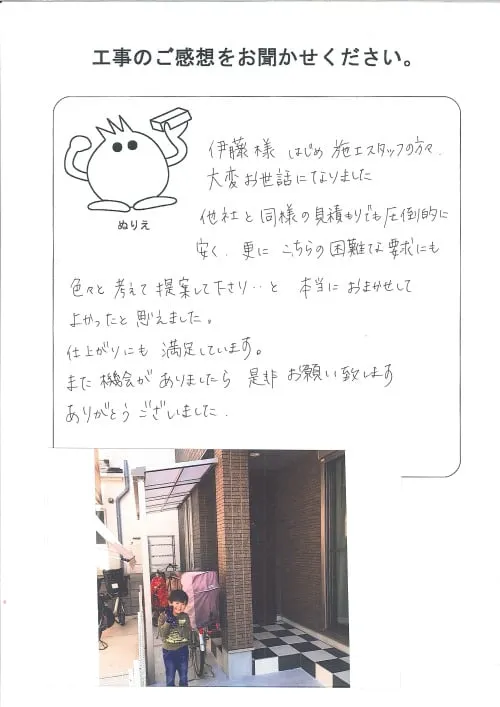 工事のご感想をお聞かせください。
ぬりえ
伊藤様 はじめ 施工スタッフの方々、
大変お世話になりました
他社と同様の見積もりでも圧倒的に
安く、更に こちらの困難な要求にも
色々と考えて提案して下さり‥と 本当におまかせして
よかったと思えました。
仕上がりにも 満足しています。
また機会がありましたら 是非 お願い致します
ありがとうございました.